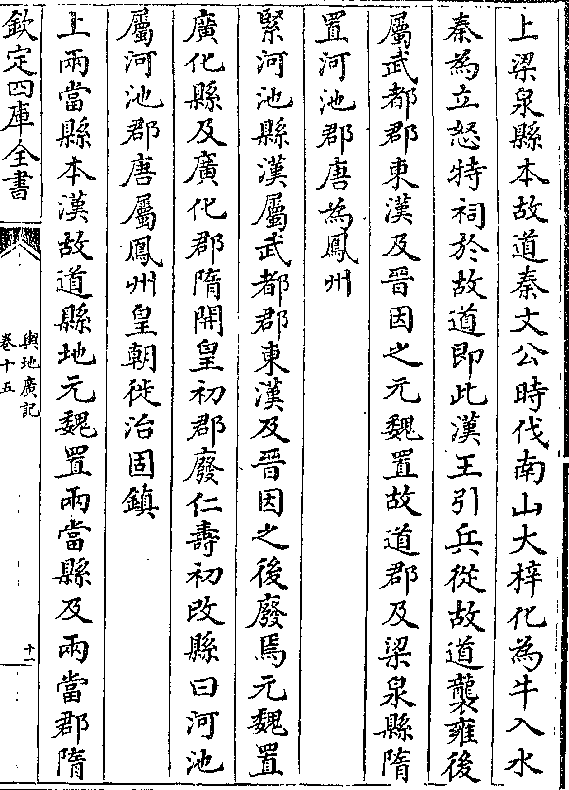 上梁泉縣本故道秦文公時伐南山大梓化為牛入水
秦為立怒特祠於故道即此漢王引兵從故道襲雍後
屬武都郡東漢及晉因之元魏置故道郡及梁泉縣隋
置河池郡唐為鳳州
緊河池縣漢屬武都郡東漢及晉因之後廢焉元魏置
廣化縣及廣化郡隋開皇初郡廢仁壽初改縣曰河池
屬河池郡唐屬鳳州皇朝徙治固鎮
上兩當縣本漢故道縣地元魏置兩當縣及兩當郡隋
欽定四庫全書
輿地廣記
卷十五
十一